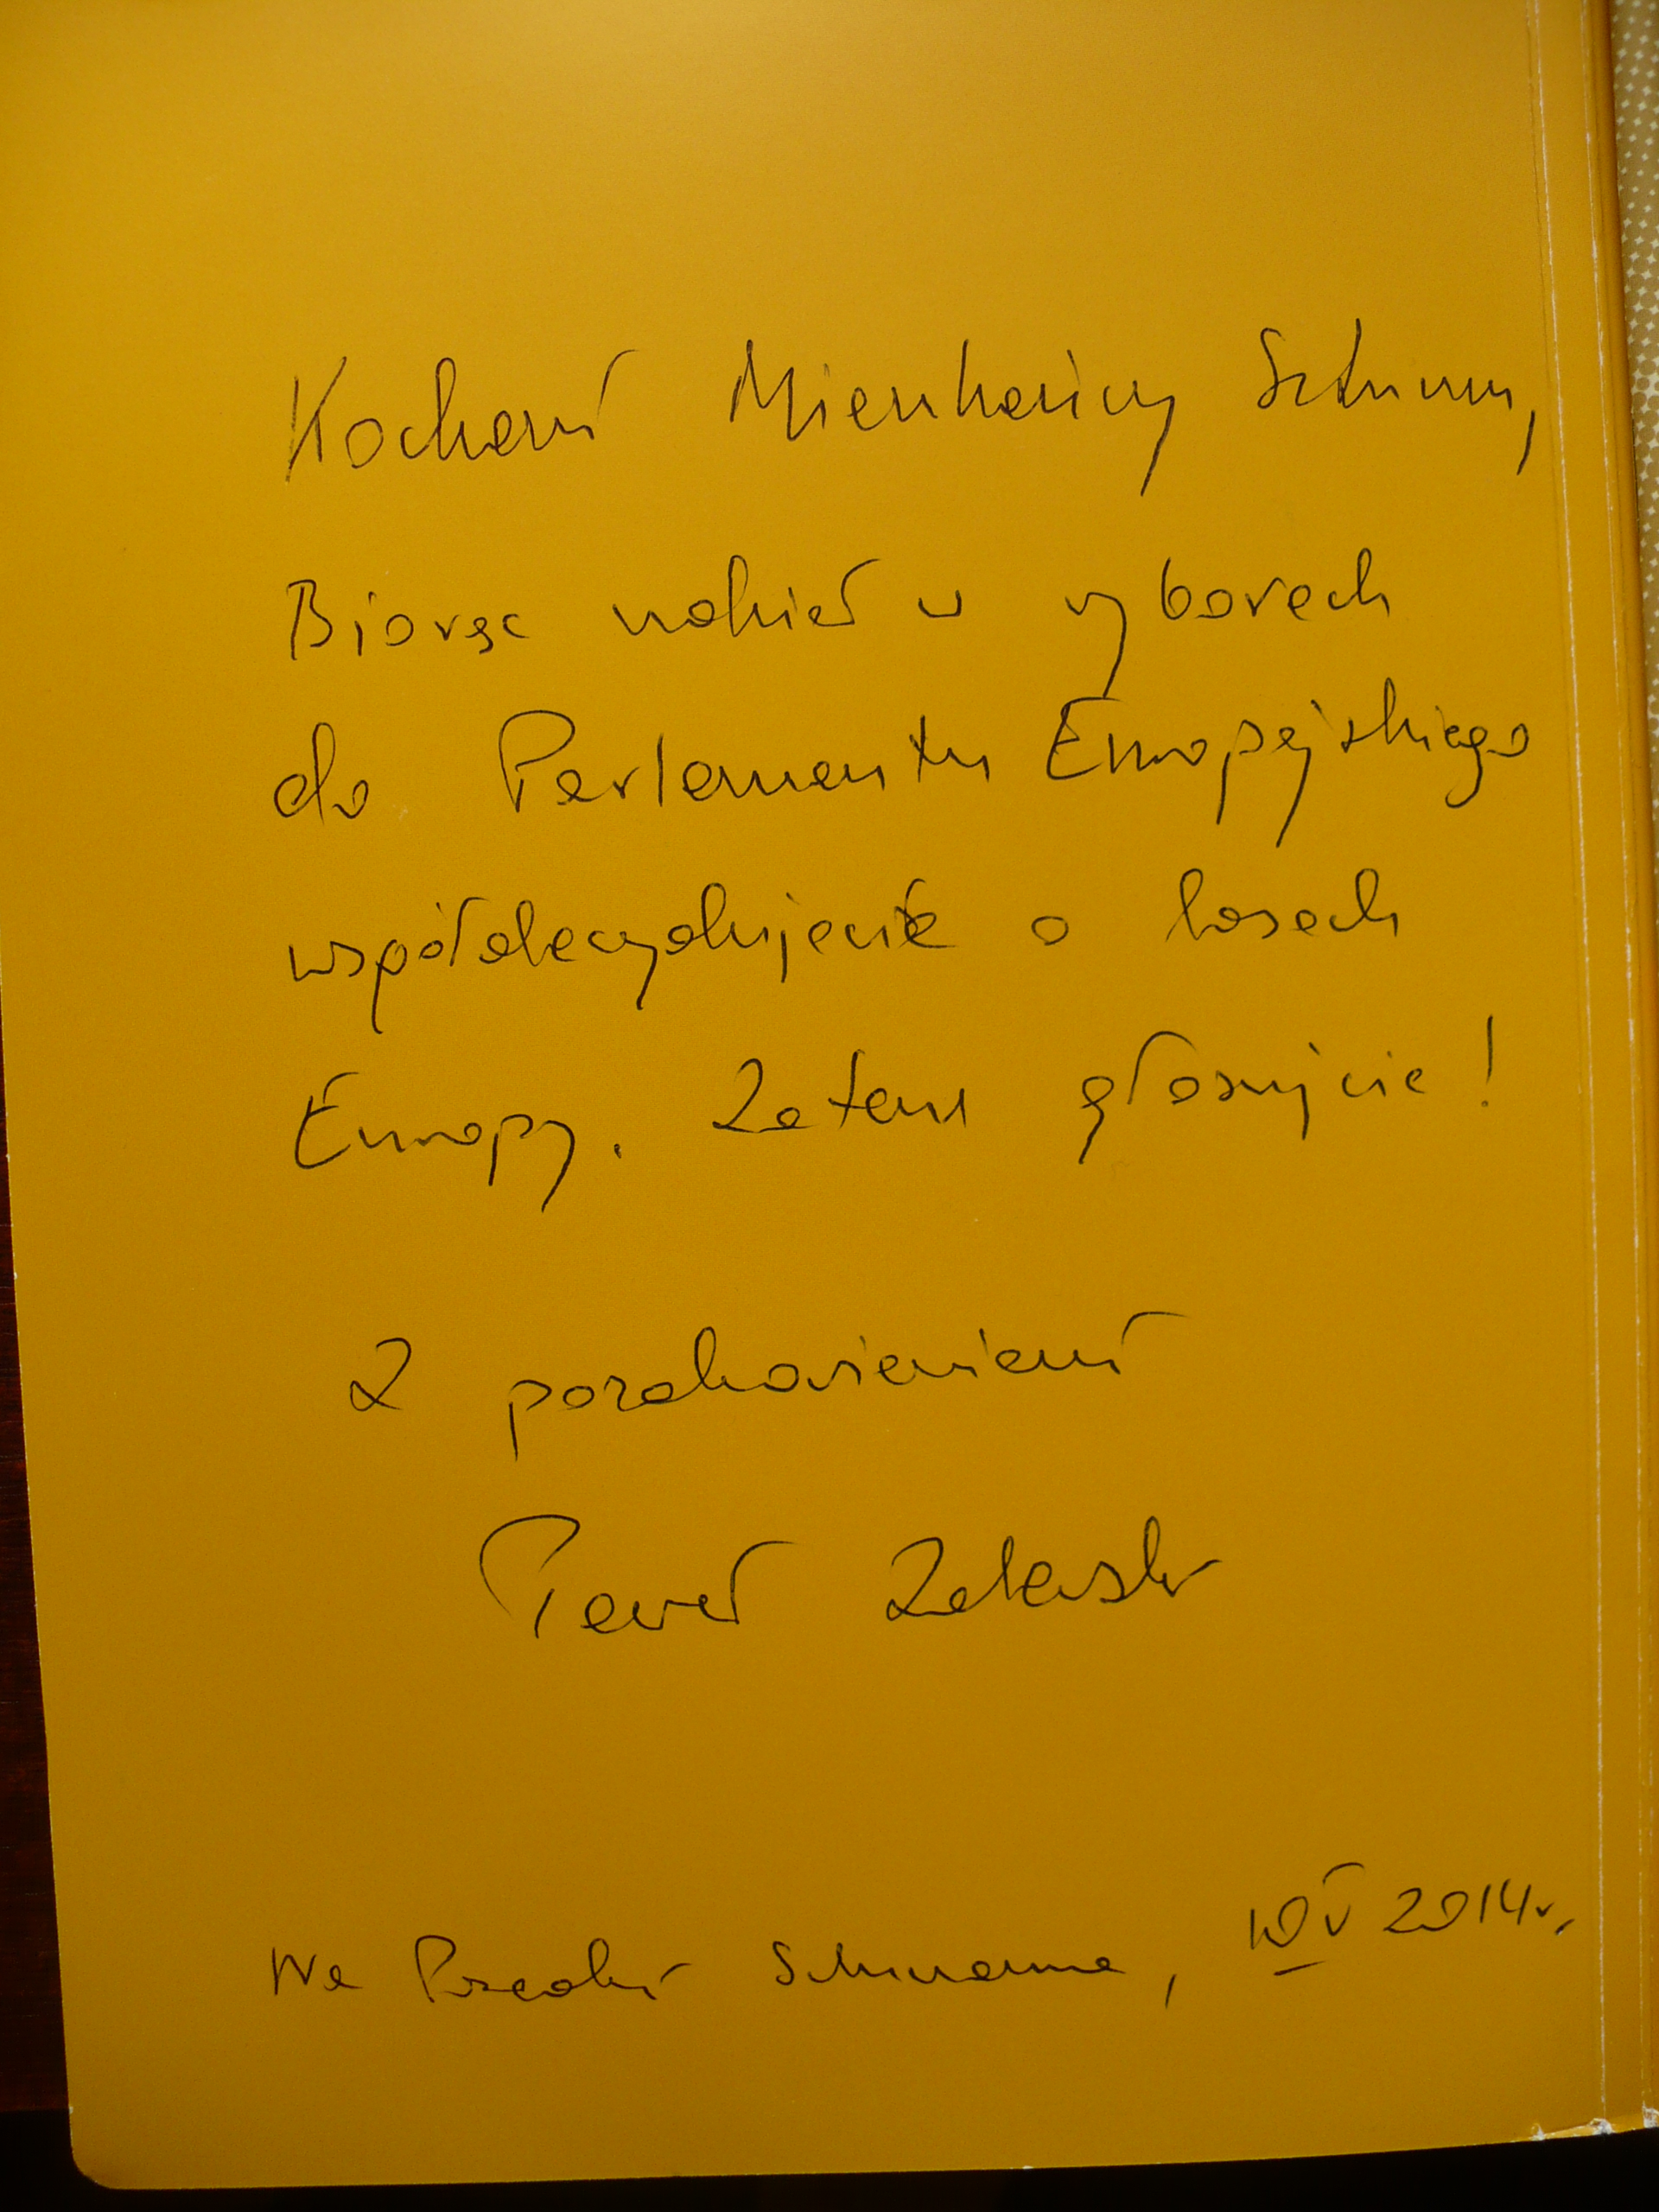 Kochani Mieszkańcy Sztumu,
Biorąc udział w wyborach
do Parlamentu Europejskiego
współdecydujecie o losach
Europy. Zatem głosujcie!
Z pozdrowieniami
Paweł Zalewski
Na Paradzie Schumana, 10 V 2014r.